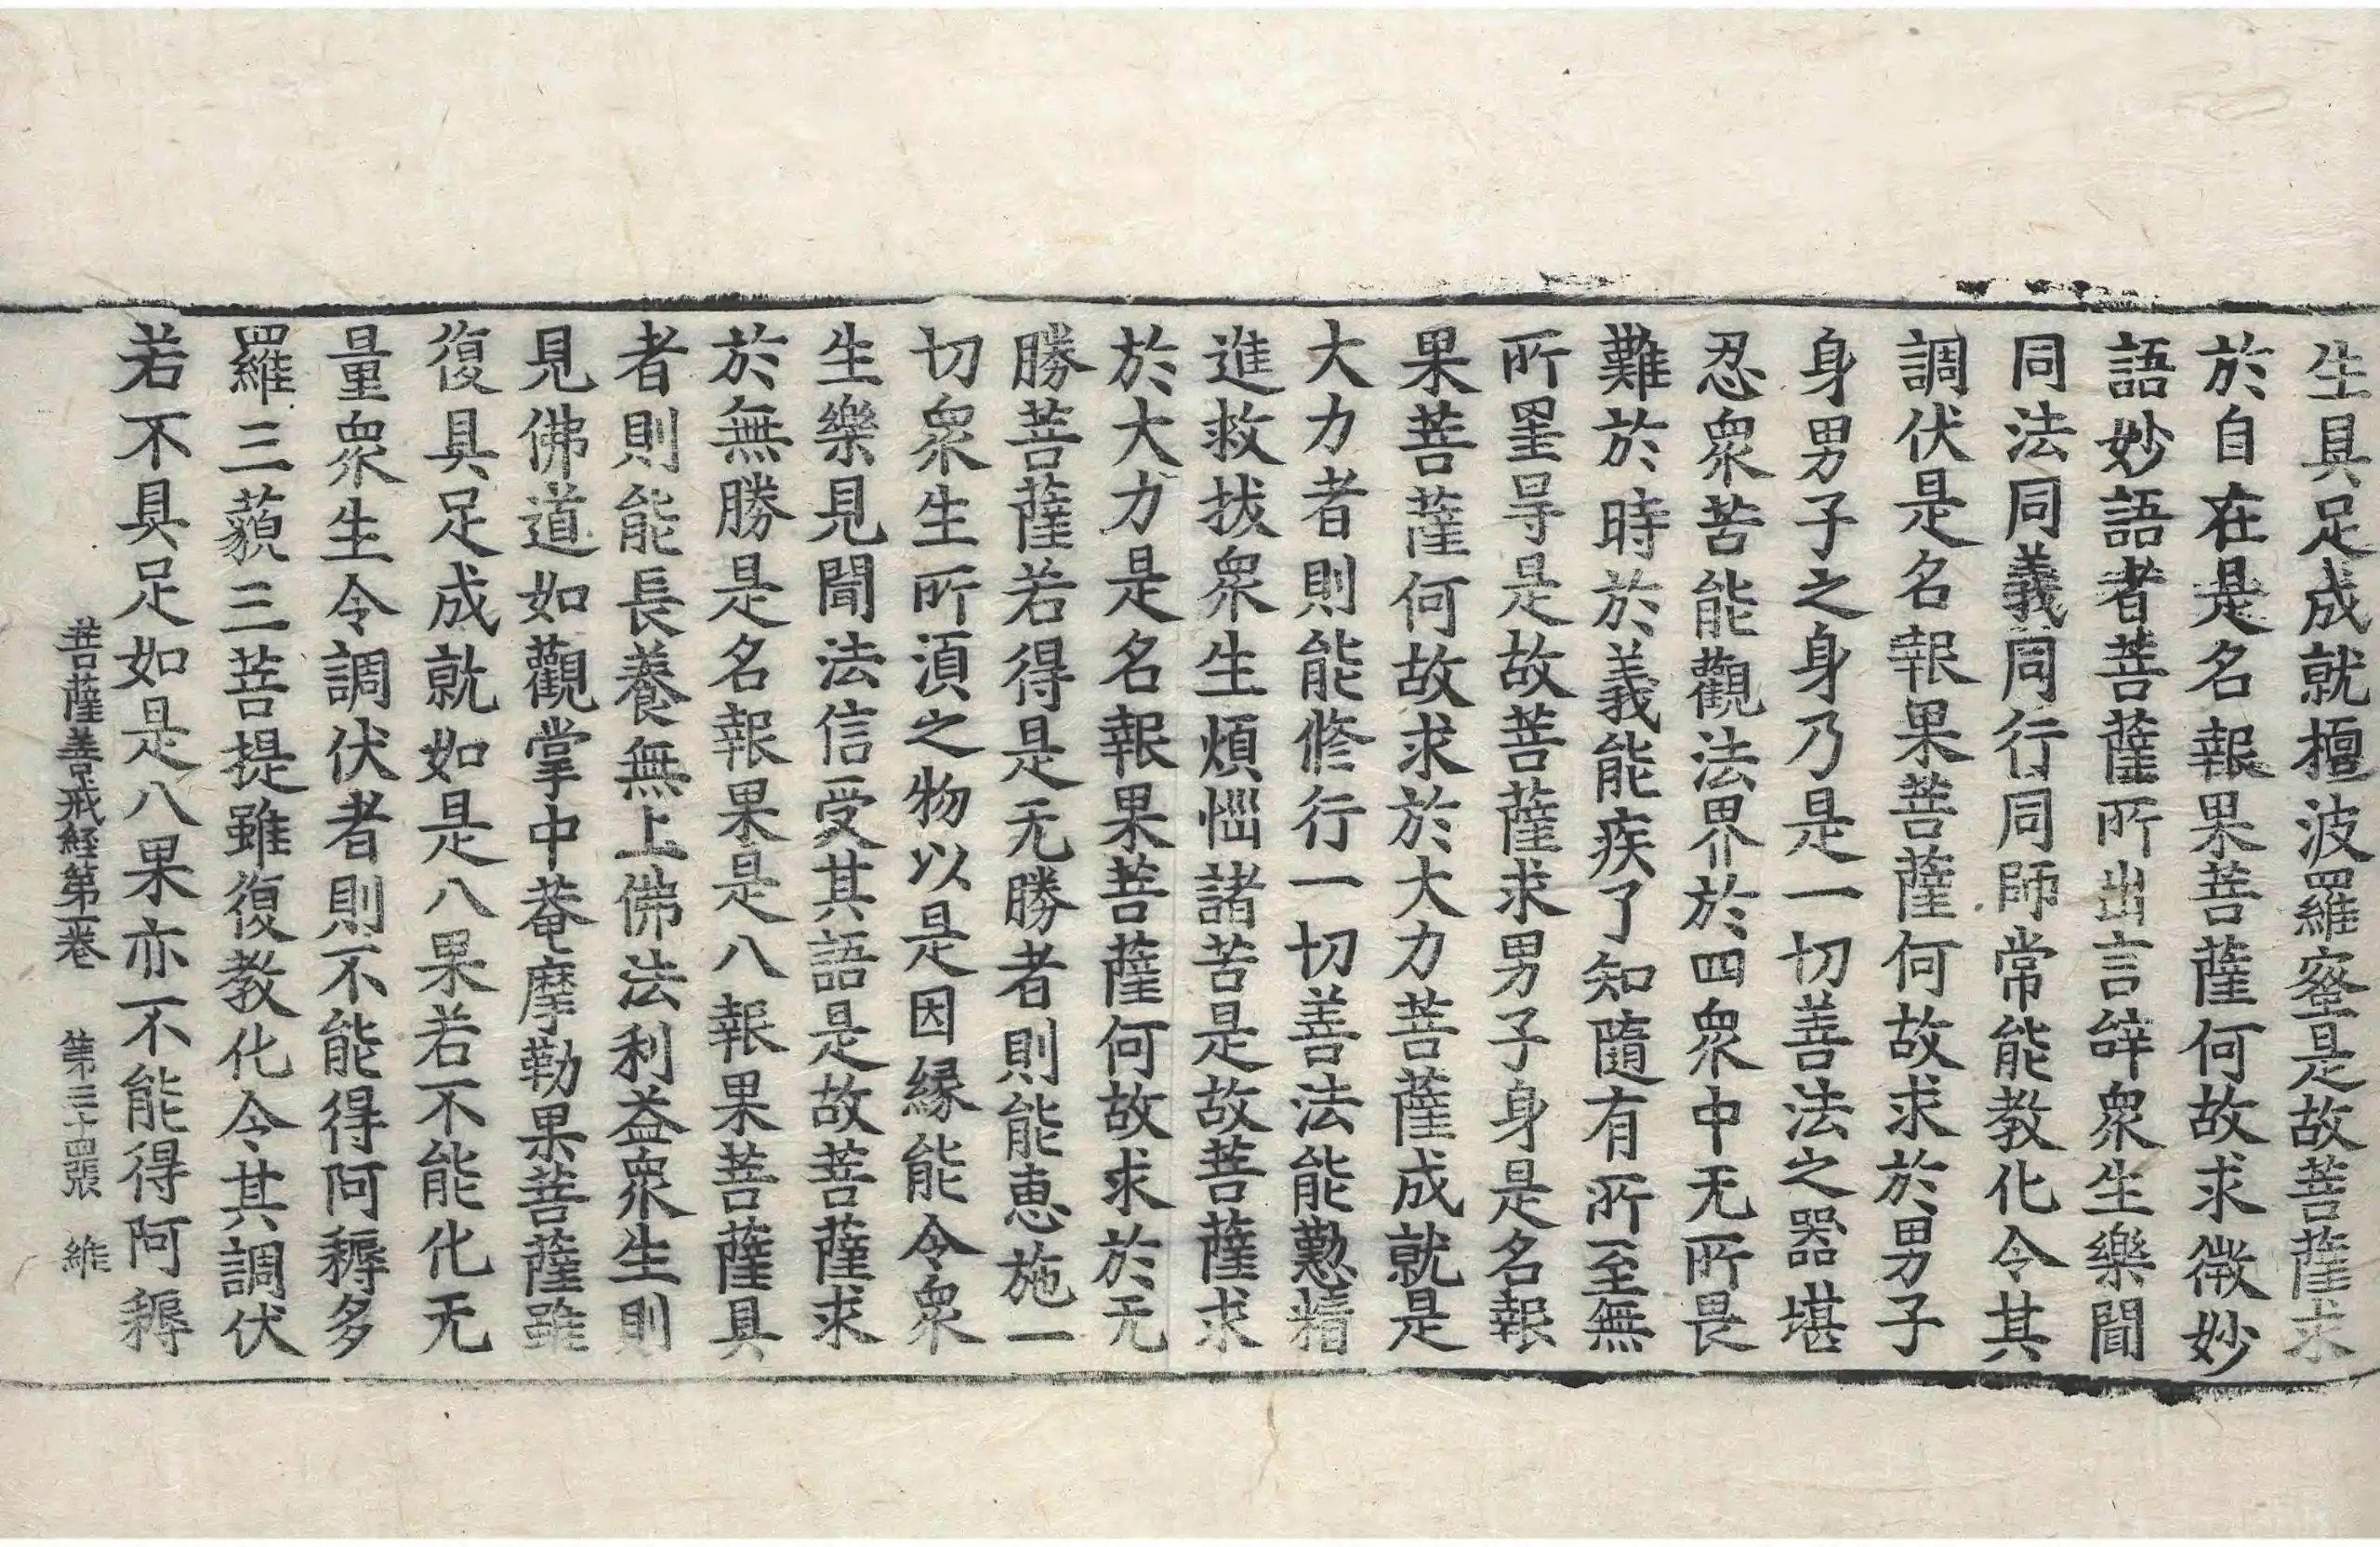 生具足成就檀波羅蜜是故菩薩求
於自在是名報果菩薩何故求微妙
語妙語者菩薩所出言辝衆生樂聞
同法同義同行同師常能教化令其
調伏是名報果菩薩何故求於男子
身男子之身乃是一切善法之器堪
忍衆苦能觀法界於四衆中无所畏
難於時於義能疾了知隨有所至無
所罣㝵是故菩薩求男子身是名報
果菩薩何故求於大力菩薩成就是
大力者則能修行一切善法能懃精
進救拔衆生煩惱諸苦是故菩薩求
於大力是名報果菩薩何故求於无
勝菩薩若得是无勝者則能惠施一
切衆生所湏之物以是因縁能令衆
生樂見聞法信受其語是故菩薩求
於無勝是名報果是八報果菩薩具
者則能長養無上佛法利益衆生則
見佛道如觀掌中菴摩勒果菩薩雖
復具足成就如是八果若不能化无
量衆生令調伏者則不能得阿耨多
羅三藐三菩提雖復教化令其調伏
若不具足如是八果亦不能得阿耨
菩薩善戒経第一卷 第三十四張 維